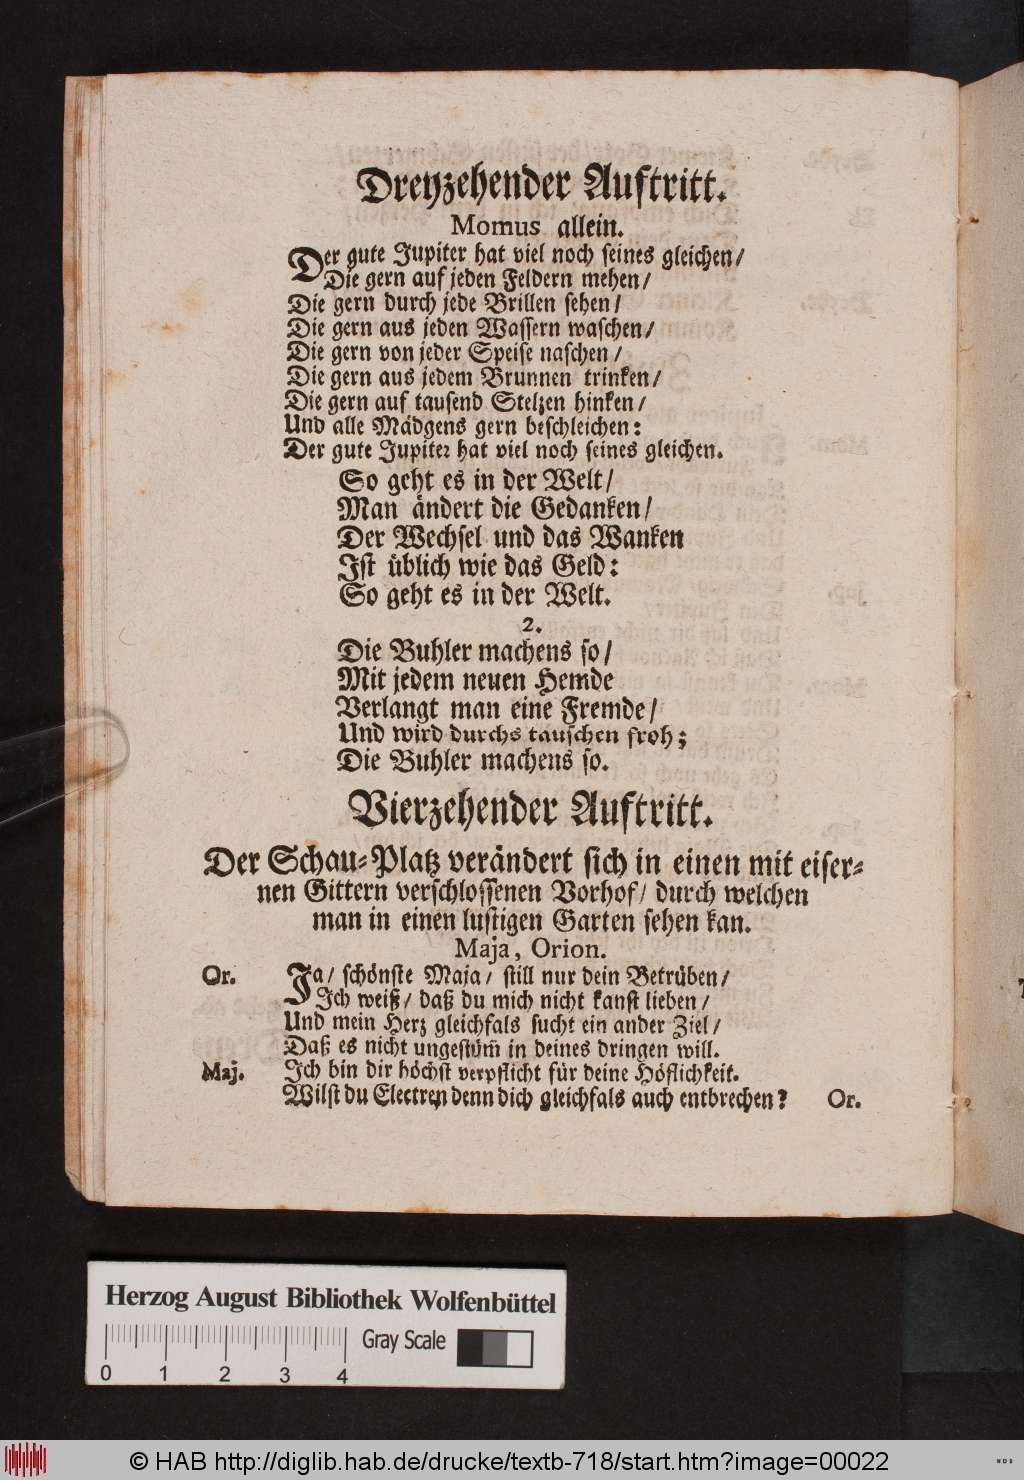 Dreyzehender Auftritt.
Momus allein.
Der gute Jupiter hat viel noch seines gleichen/
Die gern auf jeden Feldern mehen/
Die gern durch jede Brillen sehen/
Die gern aus jeden Wassern waschen/
Die gern von jeder Speise naschen/
Die gern aus jedem Brunnen trinken/
Die gern auf tausend Stelzen hinken/
Und alle Mädgens gern beschleichen:
Der gute Jupiter hat viel noch seines gleichen.
So geht es in der Welt/
Man ändert die Gedanken/
Der Wechsel und das Wanken
Ist üblich wie das Geld:
So geht es in der Welt.
2.
Die Buhler machens so/
Mit jedem neuen Hemde
Verlangt man eine Fremde/
Und wird durchs tauschen froh;
Die Buhler machens so.
Vierzehender Auftritt.
Der Schau-Platz verändert sich in einen mit eiser-
nen Gittern verschlossenen Vorhof/ durch welchen
man in einen lustigen Garten sehen kan.
Maja, Orion.
Or. Ja/ schönste Maja/ still nur dein Betrüben/
Ich weiß/ daß du mich nicht kanst lieben/
Und mein Herz gleichfals sucht ein ander Ziel/
Daß es nicht ungestüm̃ in deines dringen will.
Maj. Ich bin dir höchst verpflicht für deine Höflichkeit.
Wilst du Electren denn dich gleichfals auch entbrechen? Or.
Herzog August Bibliothek Wolfenbüttel
Gray Scale
0 1 2 3 4
© HAB http://diglib.hab.de/drucke/textb-718/start.htm?image=00022